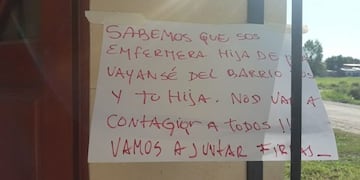 SABEMOS QUE SOS
ENFERMERA HIJA DE
VAYANSÉ DEL BARRIO
Y TU HIJA. NOS VAN A
CONTAGIAR A TODOS!!
VAMOS A JUNTAR FIRMAS_